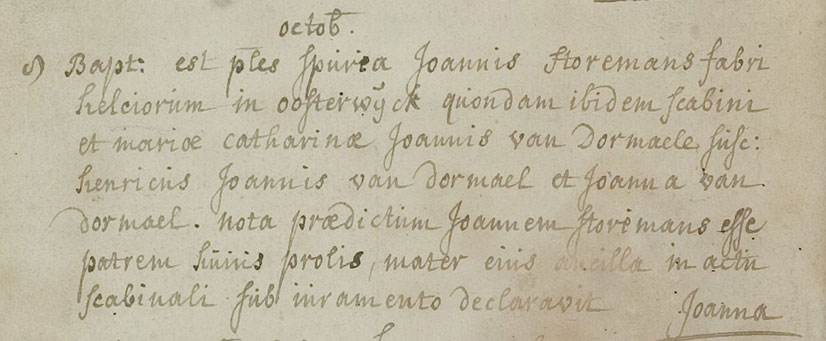 octob.
5) Bapt: est ples spuria Joannis Storemans fabri
helciorum in oosterwÿck quondam ibidem scabini
et mariæ catharinæ Joannis van Dormaele susc:
henricus Joannis van dormael et Joanna van
dormael. nota prædictum Joannem storemans esse
patrem huius prolis, mater eius ancilla in actu
scabinali sub iuramento declaravit Joanna